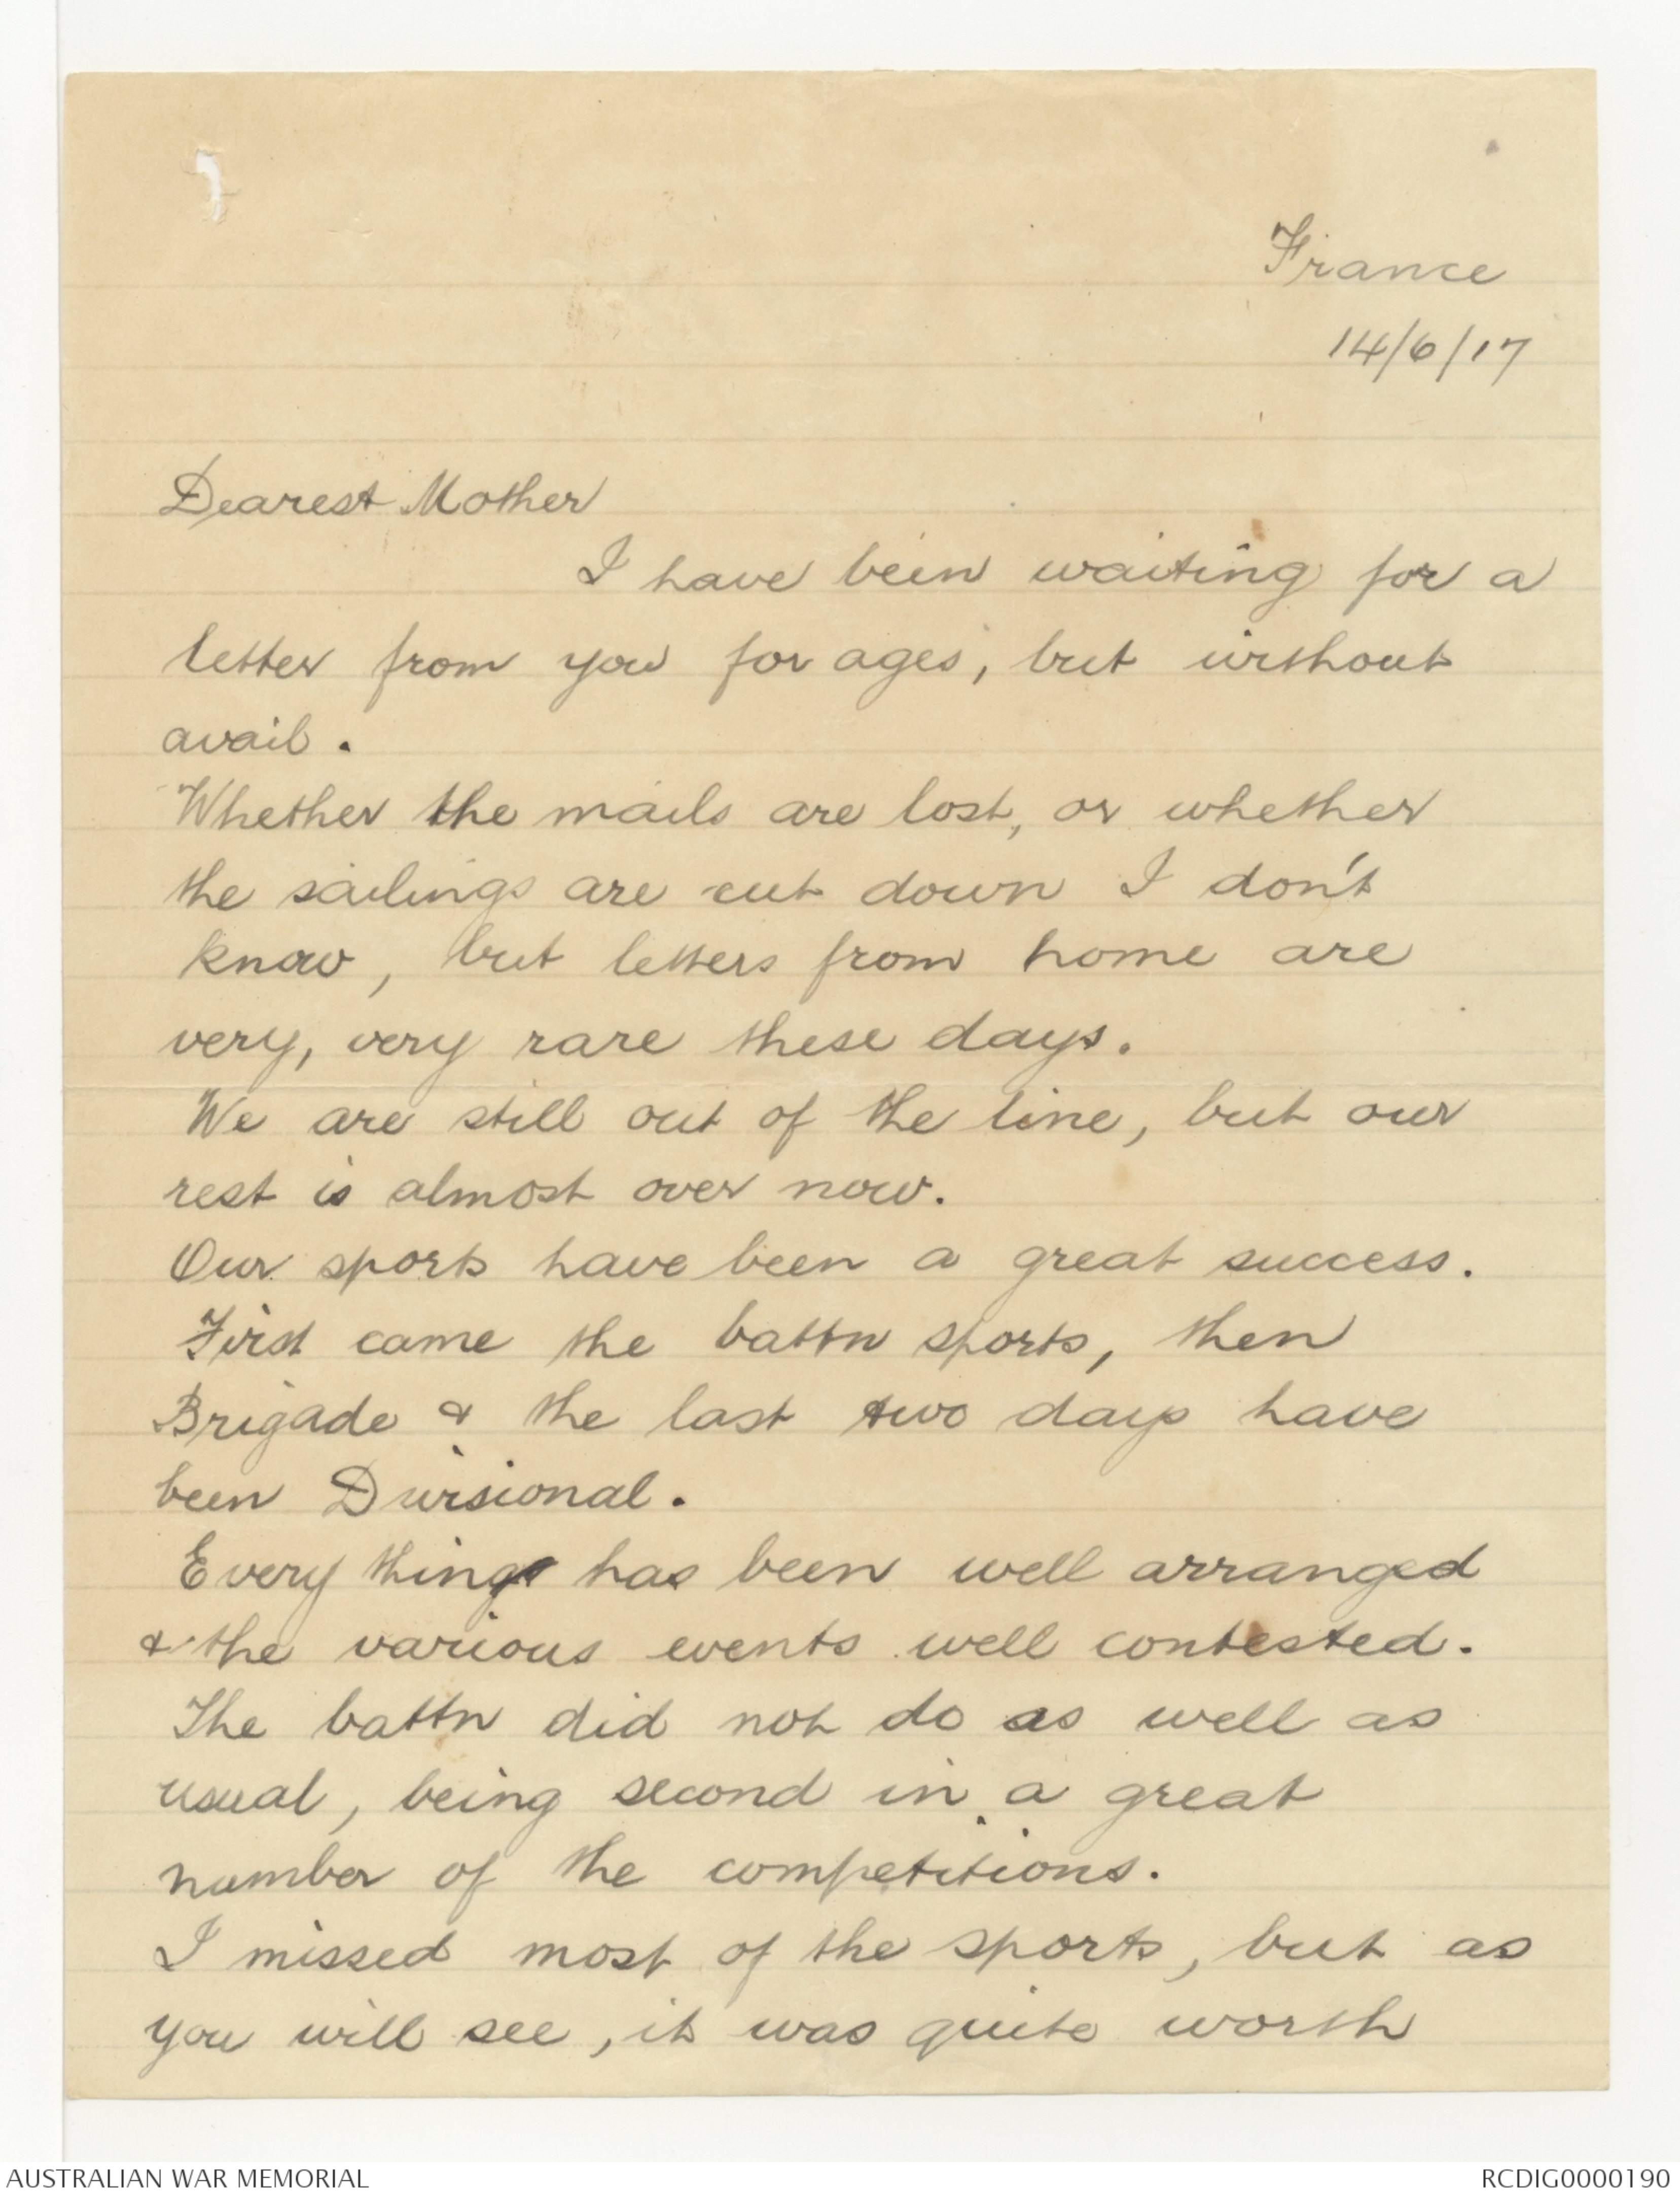 France
14/6/17
Dearest Mother
I have been waiting for a
letter from you for ages, but without
avail.
Whether the mails are lost, or whether
the sailings are cut down I don't
know, but letters from home are
very, very rare these days.
We are still out of the line, but our
rest is almost over now.
Our sports have been a great success.
First came the battn sports, then
Brigade & the last two days have
been Divisional.
Every thing has been well arranged
& the various events well contested.
The battn did not do as well as
usual, being second in a great
number of the competitions.
I missed most of the sports, but as
you will see, it was quite worth
AUSTRALIAN WAR MEMORIAL
RCDIG0000190